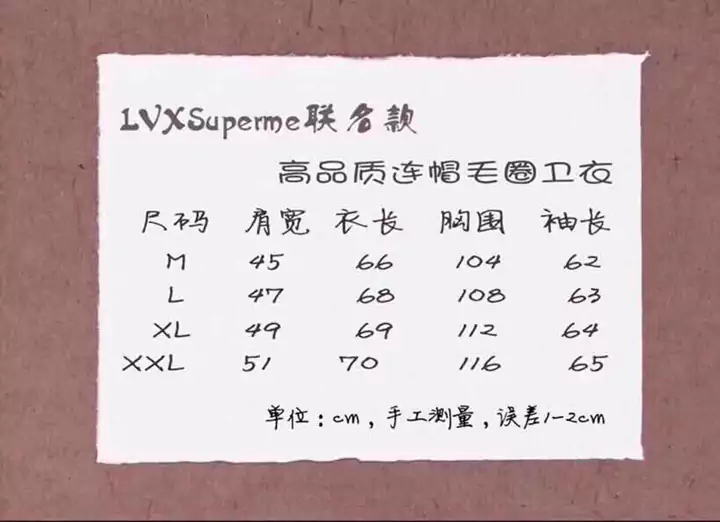 LVXSuperme联名款
高品质连帽毛圈卫衣
尺码 肩宽 衣长 胸围 袖长
M 45 66 104 62
L 47 68 108 63
XL 49 69 112 64
XXL 51 70 116 65
单位：cm，手工测量，误差1-2cm